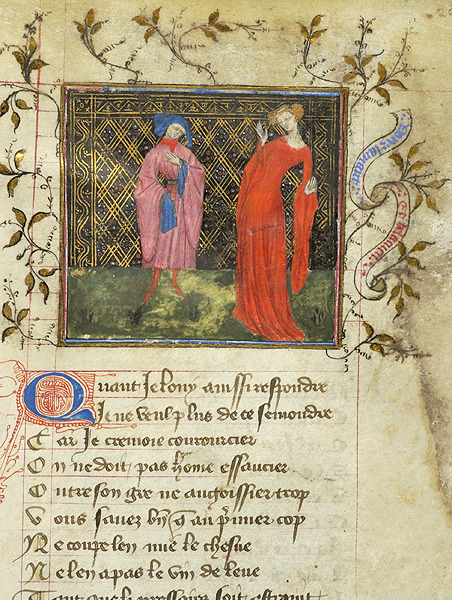 Quant Je louy ainssi respondre
Je ne veul plus de ce semondre
Car Je cremoie courourcier
On ne doit pas home essaucier
Outre son gre ne angoissier trop
Vous savez bn q au pmier cop
Ne coupe len mie le chesne
Ne len a pas le vin de leue
Tant que li pressoirs soit estraint